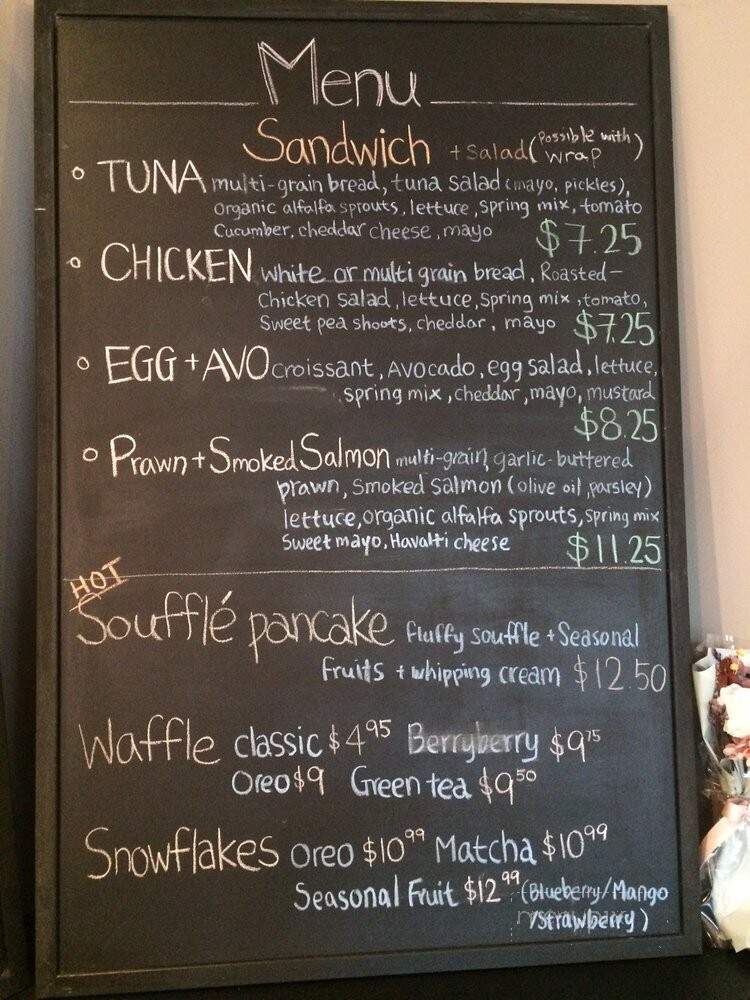 Menu
Sandwich + Salad (Possible with wrap)
TUNA multi-grain bread, tuna salad (mayo, pickles),
organic alfalfa sprouts, lettuce, spring mix, tomato
Cucumber, cheddar cheese, mayo $7.25
CHICKEN white or multi grain bread, Roasted-
Chicken salad, lettuce, spring mix, tomato,
Sweet pea shoots, cheddar, mayo $7.25
EGG + AVO croissant, Avocado, egg salad, lettuce,
spring mix, cheddar, mayo, mustard
$8.25
Prawn + Smoked Salmon multi-grain, garlic-buttered
prawn, Smoked Salmon (olive oil, parsley)
lettuce, organic alfalfa sprouts, spring mix
Sweet mayo, Havalti cheese $11.25
HOT
Soufflé pancake fluffy souffle + Seasonal
Fruits + whipping cream $12.50
Waffle classic $4.95 Berryberry $9.75
Oreo $9 Green tea $9.50
Snowflakes Oreo $10.99 Matcha $10.99
Seasonal Fruit $12.99 (Blueberry/Mango
/Strawberry)